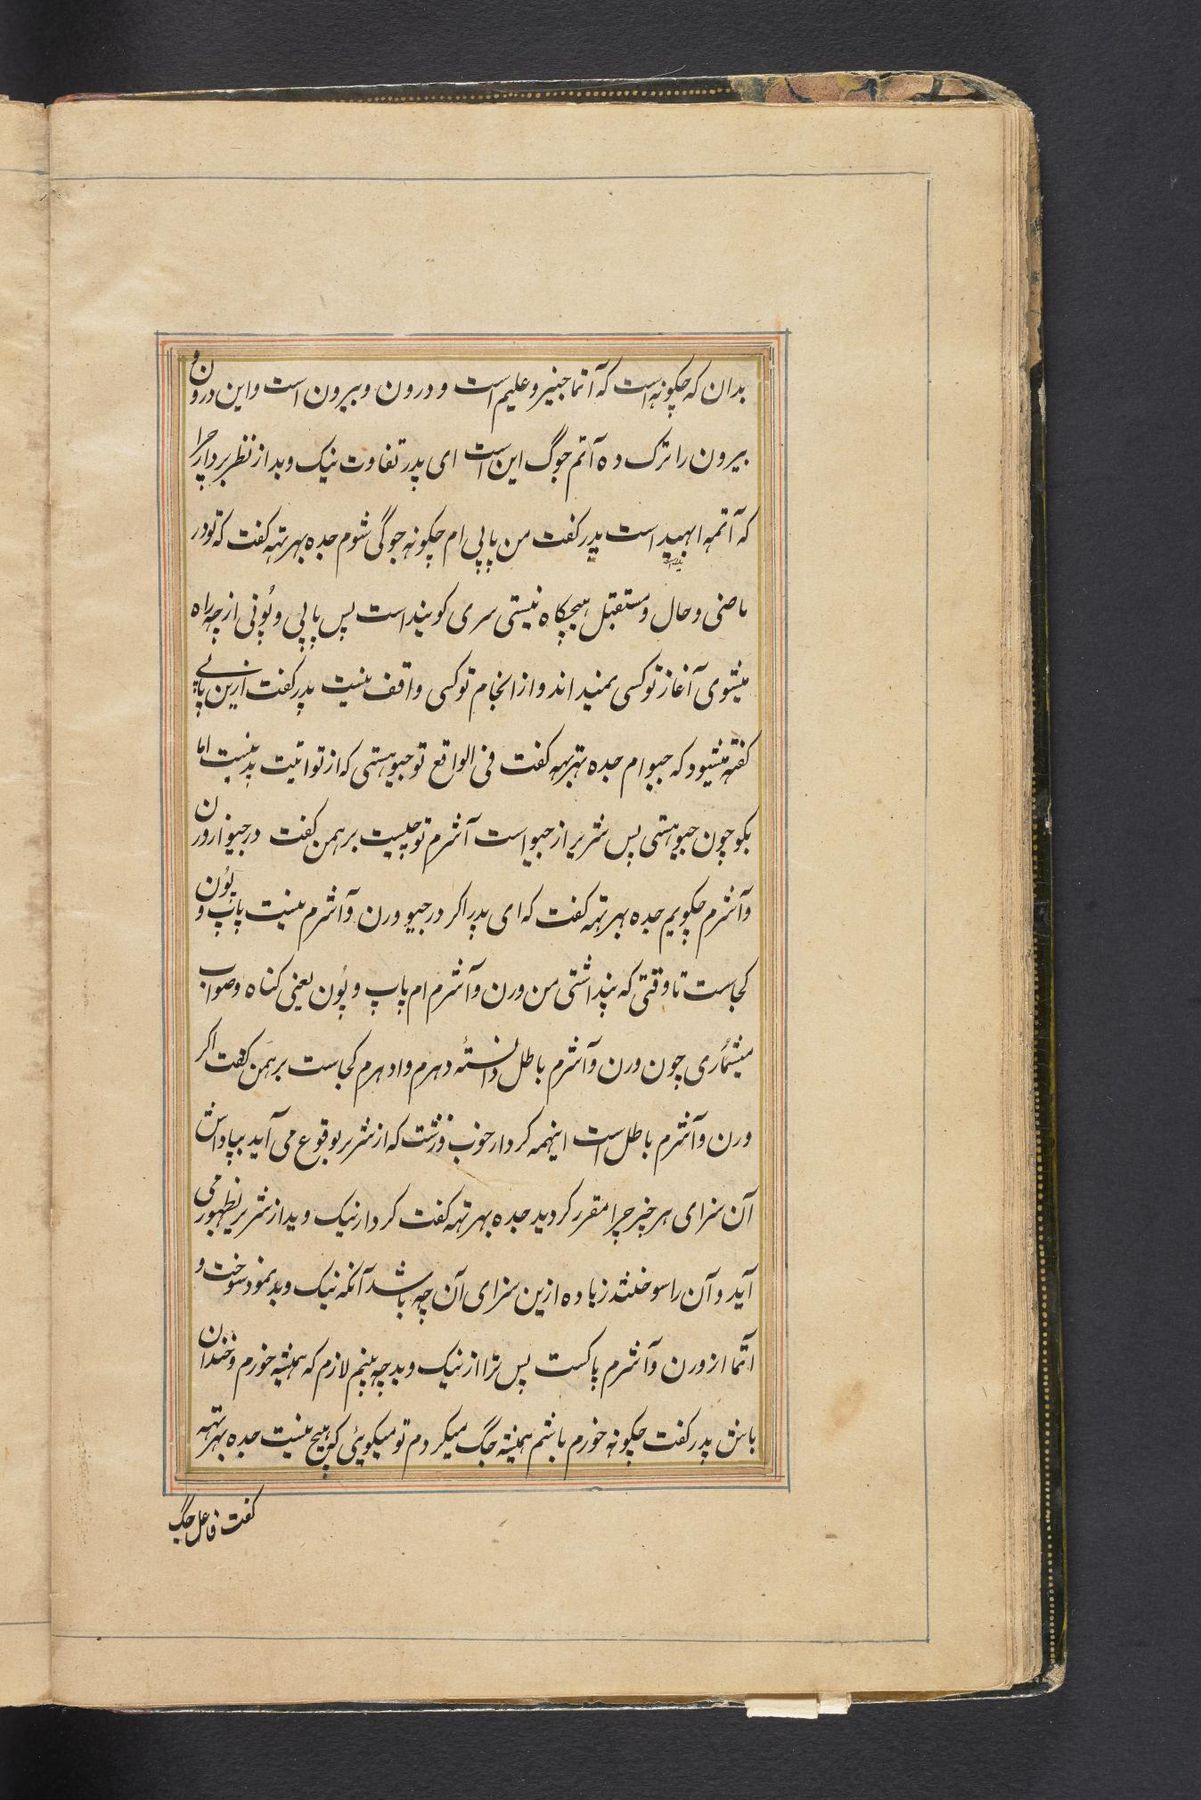 بدان که چکونه است که آتما خبیر و علیم است و درون و بیرون است و این درون و
بیرون را ترک ده آتم جوگ این است ای پدر تفاوت نیک و بد از نظر بردار چرا
که آتمه ابهید است پدر کفت من پاپی ام چکونه جوگی شوم جده بهرتهه کفت که تو در
ماضی و حال و مستقبل هیچکاه نیستی سری کویند است پس پاپی و پُونی از چه راه
میشوی آغاز تو کسی نمیداند و از انجام تو کسی واقف نیست پدر کفت ازین پاپی
کفته میشود که جیو ام جده بهرتهه کفت فی الواقع تو جیو هستی که از تو اتیت پدر نیست اما
بکو چون جیو هستی پس شریر از جیو است آشرم تو چیست برهمن کفت در جیو ازورن
و آشرم چکویم جده بهرتهه کفت که ای پدر اکر در جیو ورن و آشرم نیست پاپ و پُون
کجاست تا وقتی که پنداشتی من ورن و آشرم ام پاپ و پُون یعنی کناه و صواب
میشُماری چون ورن و آشرم باطل دانستهٔ دهرم و ادهرم کجاست برهمن کفت اکر
ورن و آشرم باطل است اینهمه کردار خوب و زشت که از شریر بوقوع می آید بپاداش
آن سزای هر چیز چرا مقرر کردید جده بهرتهه کفت کردار نیک و بد از شریر بظهور می
آید و آن را سوختند زیاده ازین سزای آن چه باشد آنکه نیک و بد نمود سوخت و
آتما از ورن و آشرم پاکست پس ترا از نیک و بد چه بینم لازم که همیشه خورم و خندان
باش پدر کفت چکونه خورم باشم همیشه جگ میکردم تو میکوئی که هیچ نیست جده بهرتهه
کفت فاعل جگ